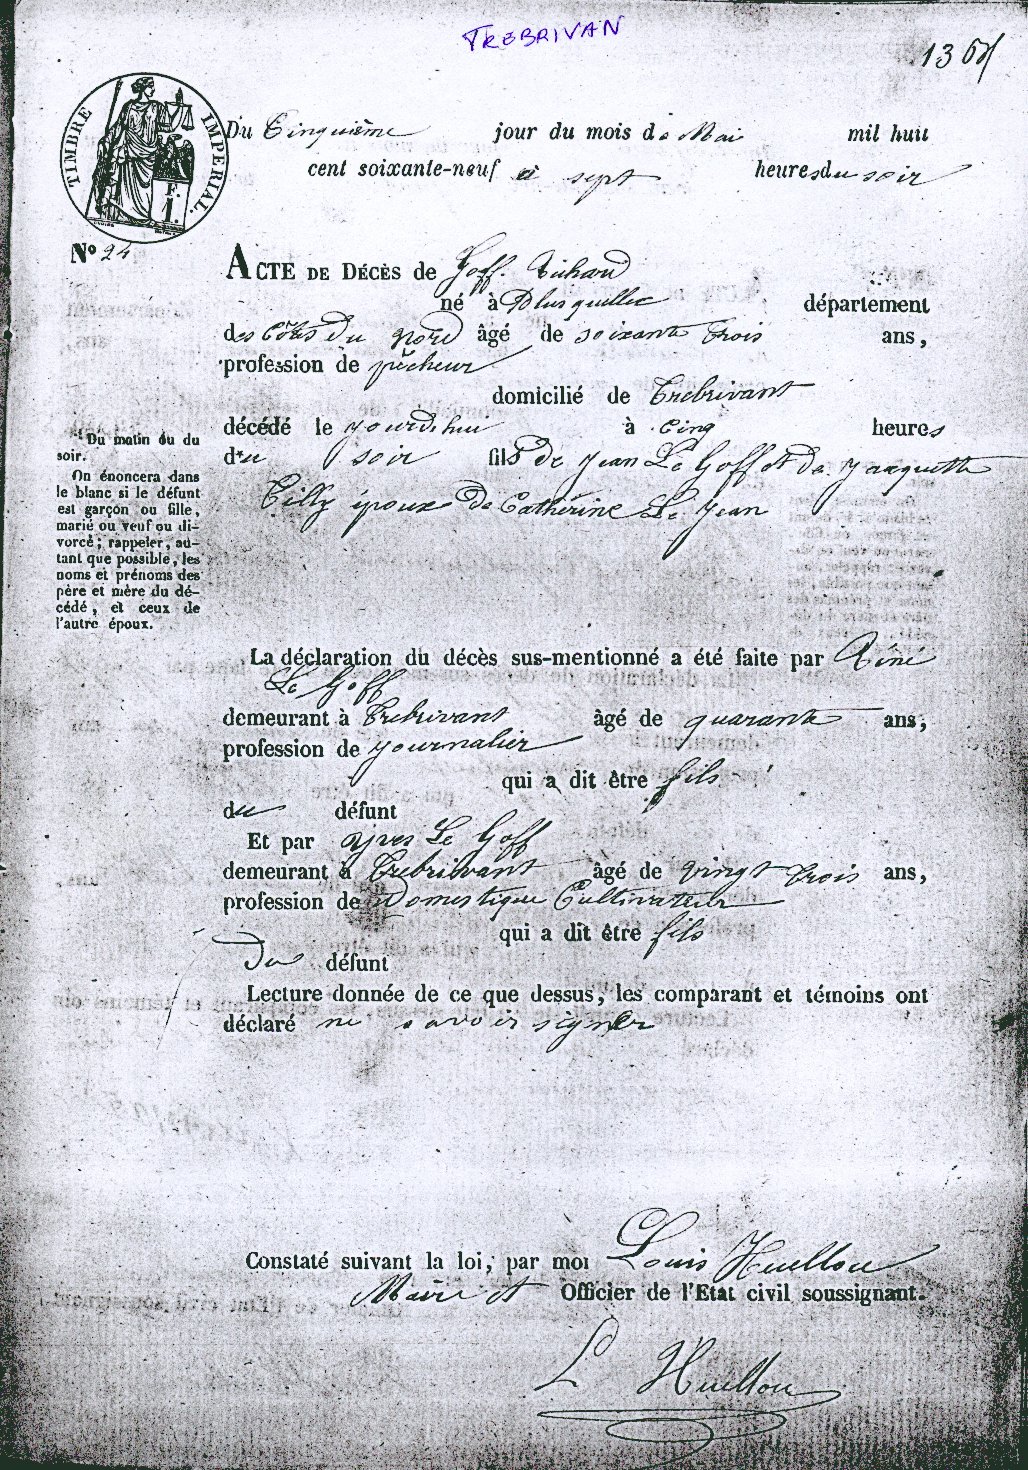 TREBRIVAN
TIMBRE IMPERIAL.
F.
1.
Du Cinquième jour du mois de Mai mil huit
cent soixante-neuf à sept heures du soir
No 24
ACTE DE DÉCÈS de Goff
né à Plusquellec département
des Côtes du Nord âgé de soixante trois ans,
profession de pêcheur
domicilié de Trebrivant
décédé le jourdhui à cinq heures
du soir fils de Jean Le Goff et de Jacquette
Tilly époux de Catherine Le Jean
'Du matin ou du
soir.
On énoncera dans
le blanc si le défunt
est garçon ou fille,
marié ou veuf ou di-
vorcé; rappeler, au-
tant que possible, les
noms et prénoms des
père et mère du dé-
cédé, et ceux de
l'autre époux.
La déclaration du décès sus-mentionné a été faite par Réné
Le Goff
demeurant à Trebrivant âgé de quarante ans,
profession de journalier
qui a dit être fils
du défunt
Et par Yves Le Goff
demeurant à Trebrivant âgé de vingt trois ans,
profession de Domestique Cultivateur
qui a dit être fils
Du défunt
Lecture donnée de ce que dessus, les comparant et témoins ont
déclaré ne savoir signer
Constaté suivant la loi, par moi Louis Huellou
Maire et Officier de l'Etat civil soussignant.
L Huellou